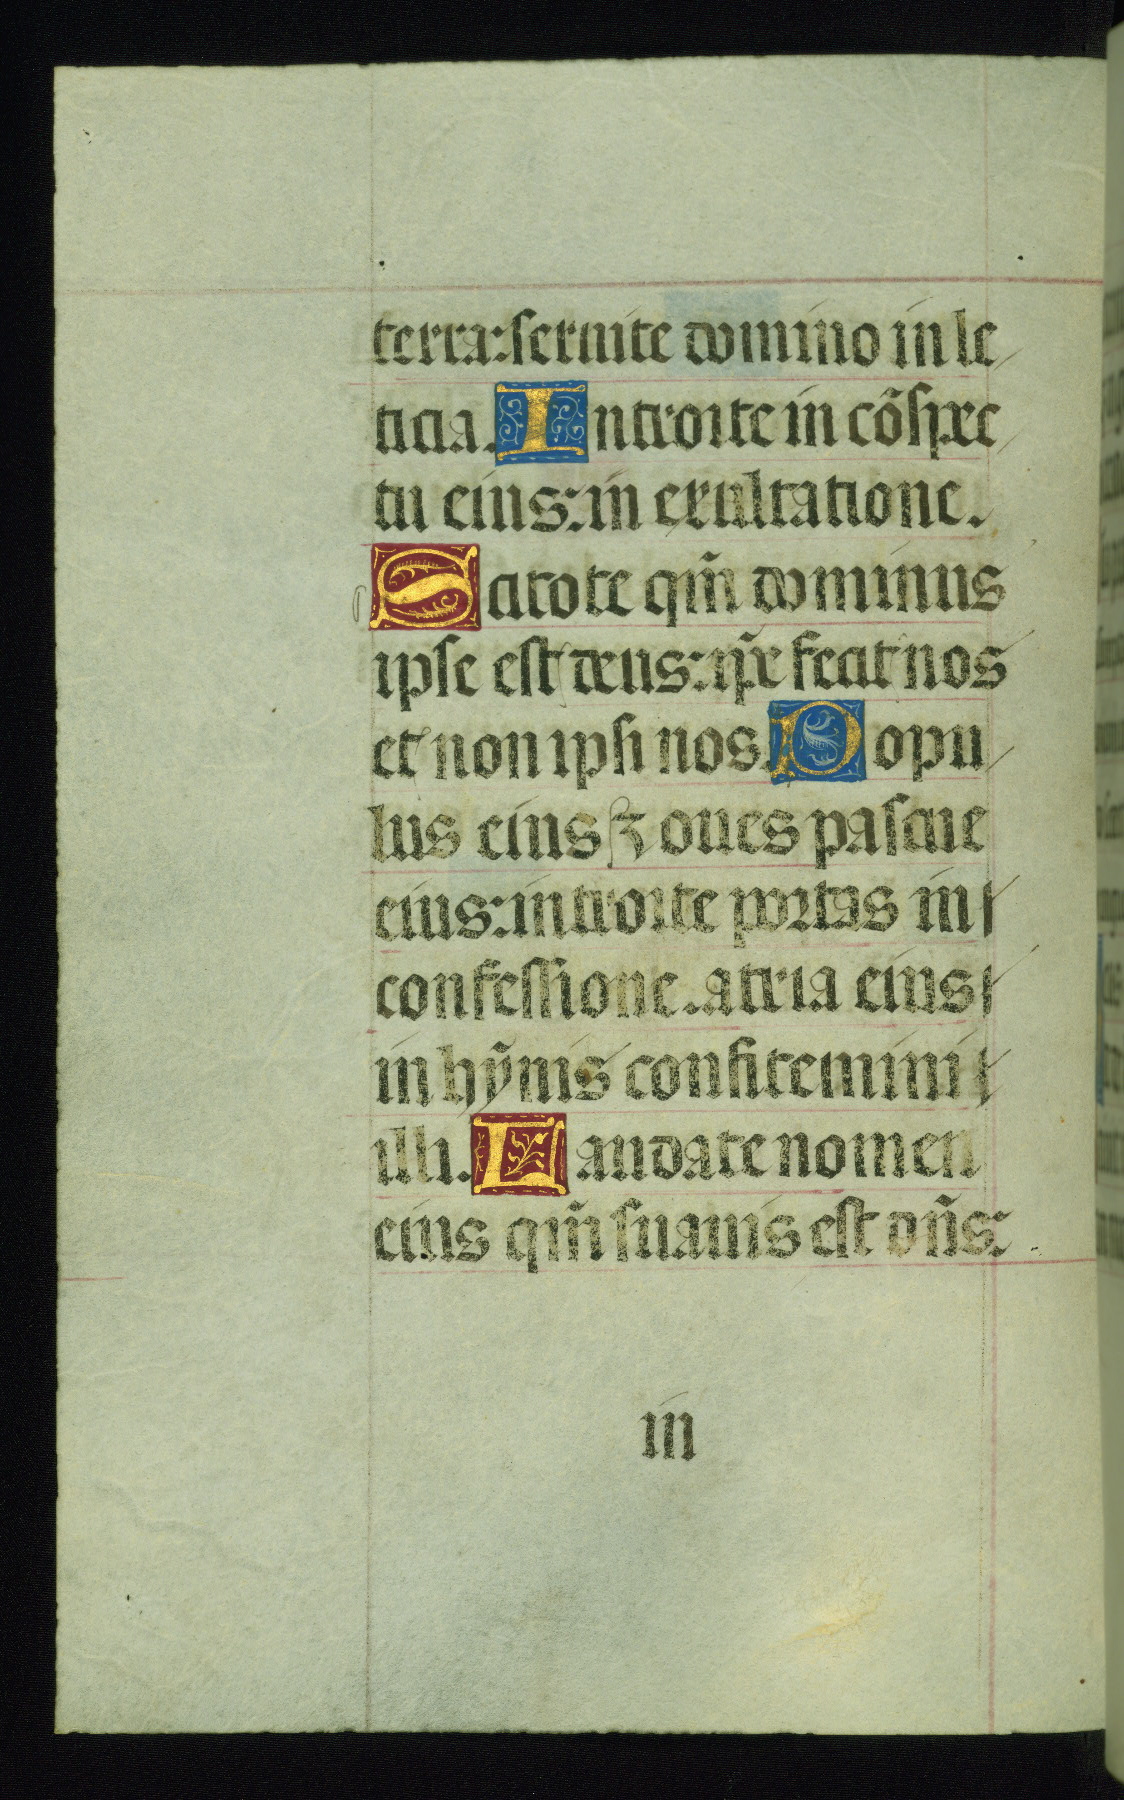 terra: seruite domino in le
ticia. Introite in cõspec
tu eius: in exultatione.
Scitote qm̃ dominus
ipse est deus: ip̃e fecit nos
et non ipsi nos. Popu
lus eius ⁊ oues pascue
eius: introite portas in
confessione. atria eius
in hỹnis confitemini
illi. Laudate nomen
eius qm̃ suauis est dñs:
in